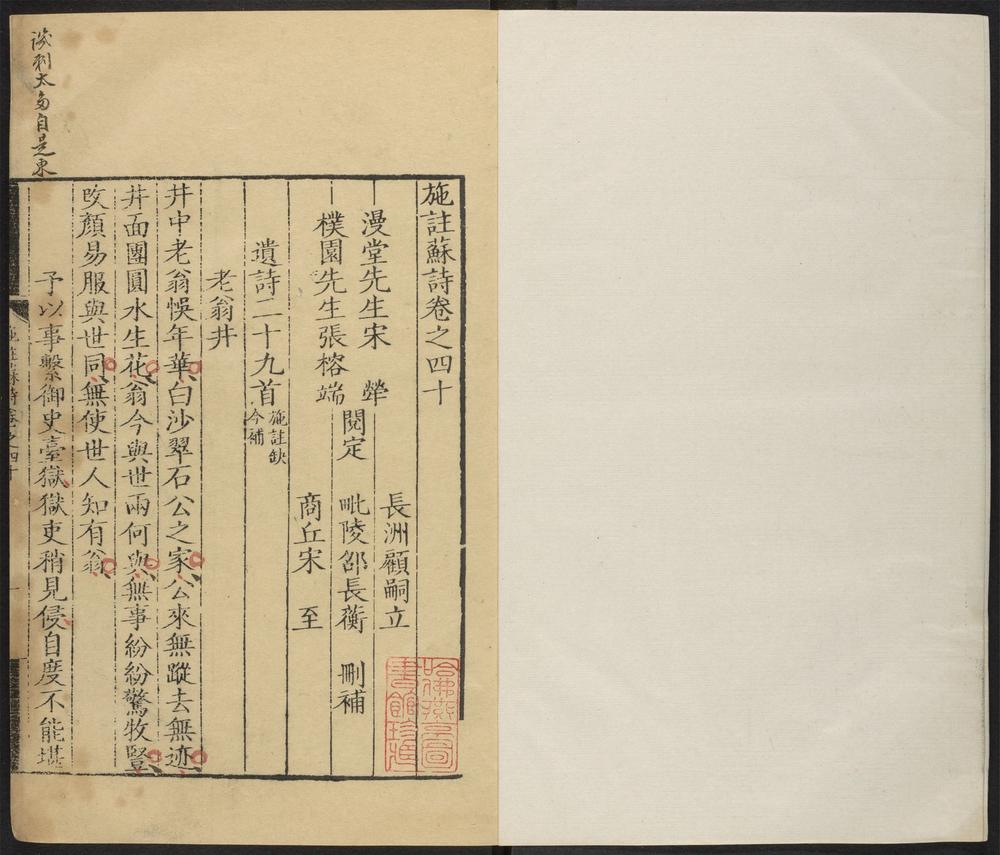 施註蘇詩卷之四十
長洲顧嗣立
漫堂先生宋犖
閱定
毗陵邵長蘅
刪補
樸園先生張榕端
商丘宋至
遺詩二十九首施註缺今補
老翁井
井中老翁悞年華白沙翠石公之家公來無蹤去無迹
井面團圓水生花翁今與世兩何與無事紛紛驚牧豎
改顏易服與世同無使世人知有翁
予以事繫御史臺獄獄吏稍見侵自度不能堪
施註蘇詩卷之四十
太多自是東
哈佛燕京圖書館珍藏